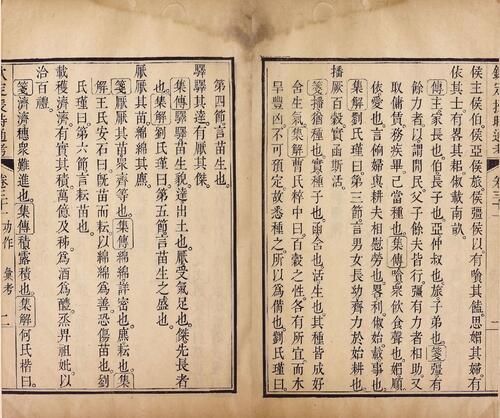 侯主侯伯。侯亞侯旅。侯彊侯以。有嗿其饁。思媚其婦。有
依其士。有畧其耜。俶載南畝。
傳主家長也。伯長子也。亞仲叔也。旅子弟也。箋彊有
餘力者。以謂閒民。父子餘夫皆行。彊有力者相助。又
取傭賃。務疾畢已當種也。集傳嗿眾飲食聲也。媚順。
依愛也。言餉婦與耕夫相慰勞也。畧利。俶始。載事也。
集解劉氏瑾曰。第三節言男女長幼齊力於始耕也。
播厥百穀。實函斯活。
箋播猶種也。實種子也。函含也。活生也。其種皆成好。
含生氣。集解曹氏粹中曰。百穀之性。各有所宜。而水
旱豐凶。不可預定。故悉種之。所以為備也。劉氏瑾曰。
第四節言苗生也。
驛驛其達。有厭其傑。
集傳驛驛苗生貌。達出土也。厭受氣足也。傑先長者
也。集解劉氏瑾曰。第五節言苗生之盛也。
厭厭其苗。緜緜其麃。
箋厭厭其苗。眾齊等也。集傳緜緜詳密也。麃耘也。集
解王氏安石曰。旣苗而耘。以緜緜為善。恐傷苗也。劉
氏瑾曰。第六節言耘苗也。
載穫濟濟。有實其積。萬億及秭。為酒為醴。烝畀祖妣。以
洽百禮。
箋濟濟穗眾難進也。集傳積露積也。集解何氏楷曰。
欽定授時通考 卷三十一 功作 彙考 二